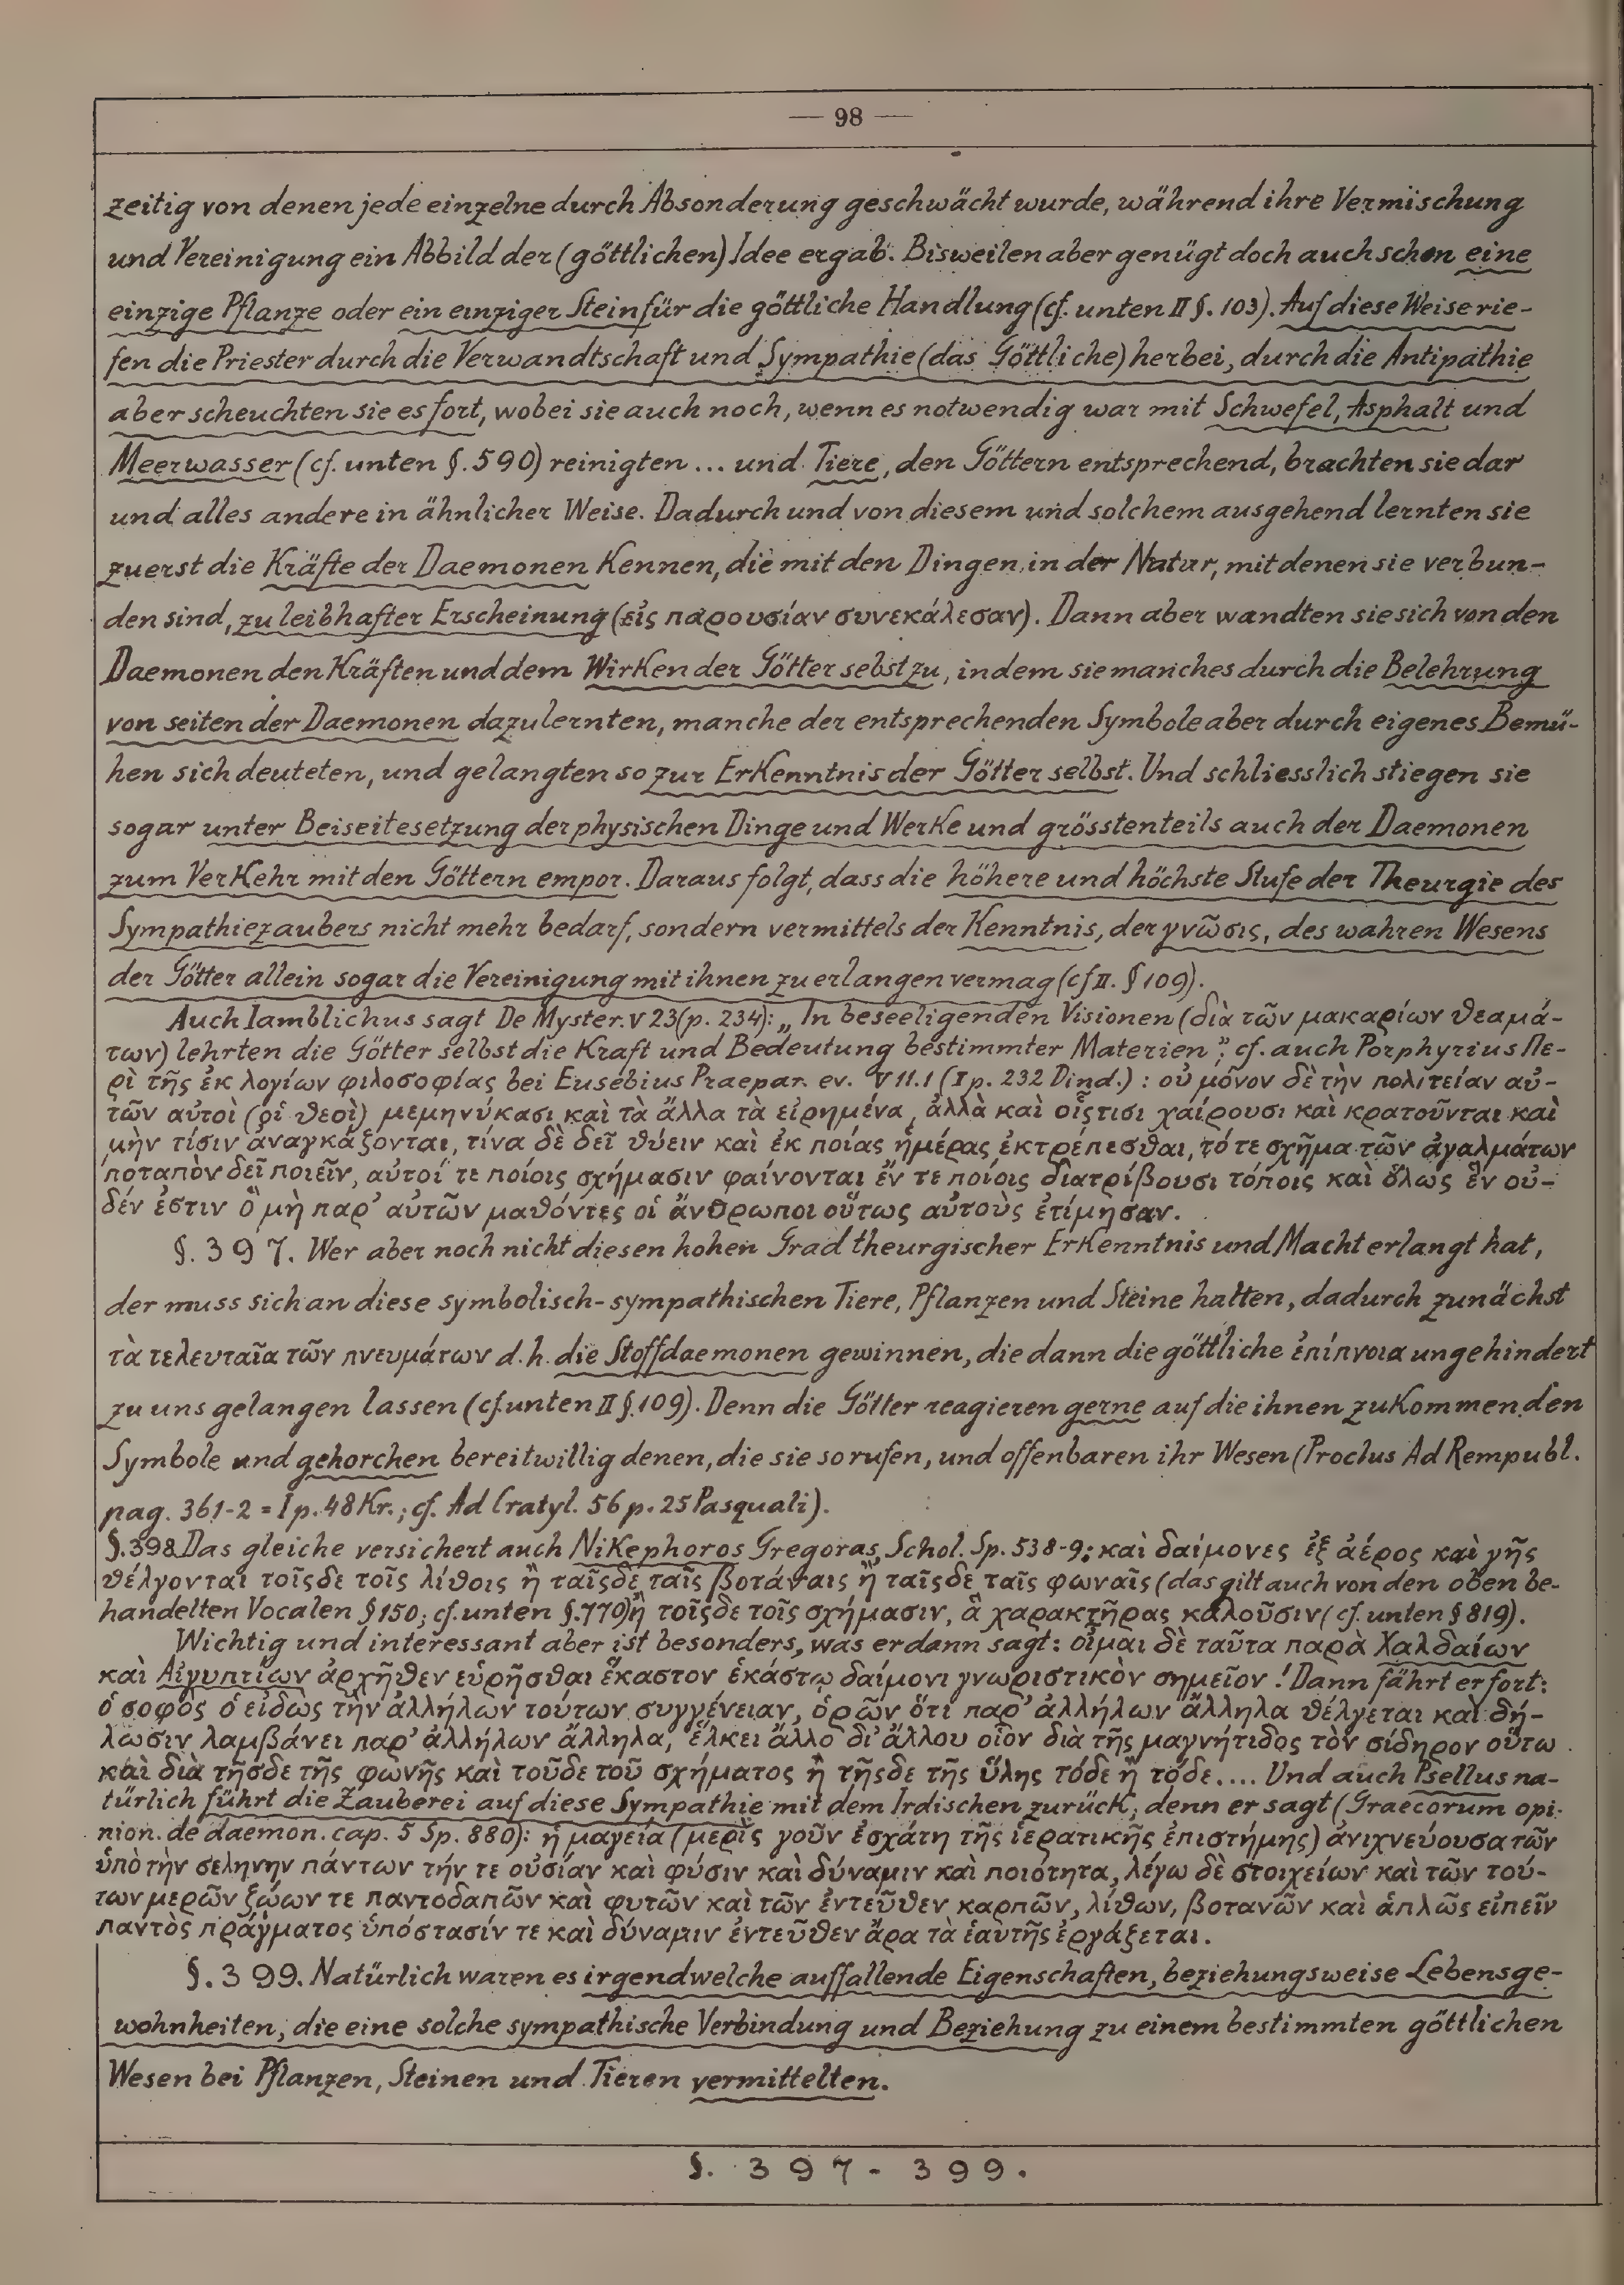 — 98 —
zeitig von denen jede einzelne durch Absonderung geschwächt wurde, während ihre Vermischung
und Vereinigung ein Abbild der (göttlichen) Idee ergab. Bisweilen aber genügt doch auch schon eine
einzige Pflanze oder ein einziger Stein für die göttliche Handlung (cf. unten II §. 103). Auf diese Weise rie-
fen die Priester durch die Verwandtschaft und Sympathie (das Göttliche) herbei, durch die Antipathie
aber scheuchten sie es fort, wobei sie auch noch, wenn es notwendig war mit Schwefel, Asphalt und
Meerwasser (cf. unten §. 590) reinigten ... und Tiere, den Göttern entsprechend, brachten sie dar
und alles andere in ähnlicher Weise. Dadurch und von diesem und solchem ausgehend lernten sie
zuerst die Kräfte der Daemonen kennen, die mit den Dingen in der Natur, mit denen sie verbun-
den sind, zu leibhafter Erscheinung (εἰς παρουσίαν συνεκάλεσαν). Dann aber wandten sie sich von den
Daemonen den Kräften und dem Wirken der Götter sebst zu, indem sie manches durch die Belehrung
von seiten der Daemonen dazulernten, manche der entsprechenden Symbole aber durch eigenes Bemü-
hen sich deuteten, und gelangten so zur Erkenntnis der Götter selbst. Und schliesslich stiegen sie
sogar unter Beiseitesetzung der physischen Dinge und Werke und grösstenteils auch der Daemonen
zum Verkehr mit den Göttern empor. Daraus folgt, dass die höhere und höchste Stufe der Theurgie des
Sympathiezaubers nicht mehr bedarf, sondern vermittels der Kenntnis, der γνῶσις, des wahren Wesens
der Götter allein sogar die Vereinigung mit ihnen zu erlangen vermag (cf II. § 109).
Auch Iamblichus sagt De Myster. V 23 (p. 234): „In beseeligenden Visionen (διὰ τῶν μακαρίων θεαμά-
των) lehrten die Götter selbst die Kraft und Bedeutung bestimmter Materien"; cf. auch Porphyrius Πε-
ρὶ τῆς ἐκ λογίων φιλοσοφίας bei Eusebius Praepar. ev. V 11.1 (I p. 232 Dind.) : οὐ μόνον δὲ τὴν πολιτείαν αὐ-
τῶν αὐτοὶ (οἱ θεοὶ) μεμηνύκασι καὶ τὰ ἄλλα τὰ εἰρημένα, ἀλλὰ καὶ οἷςτισι χαίρουσι καὶ κρατοῦνται καὶ
μὴν τίσιν ἀναγκάζονται, τίνα δὲ δεῖ θύειν καὶ ἐκ ποίας ἡμέρας ἐκτρέπεσθαι, τό τε σχῆμα τῶν ἀγαλμάτων
ποταπὸν δεῖ ποιεῖν, αὐτοί τε ποίοις σχήμασιν φαίνονται ἔν τε ποίοις διατρίβουσι τόποις καὶ ὅλως ἓν οὐ-
δέν ἐστιν ὃ μὴ παρ' αὐτῶν μαθόντες οἱ ἄνθρωποι οὕτως αὐτοὺς ἐτίμησαν.
§. 397. Wer aber noch nicht diesen hohen Grad theurgischer Erkenntnis und Macht erlangt hat,
der muss sich an diese symbolisch-sympathischen Tiere, Pflanzen und Steine halten, dadurch zunächst
τὰ τελευταῖα τῶν πνευμάτων d. h. die Stoffdaemonen gewinnen, die dann die göttliche ἐπίπνοια ungehindert
zu uns gelangen lassen (cf. unten II §. 109). Denn die Götter reagieren gerne auf die ihnen zukommenden
Symbole und gehorchen bereitwillig denen, die sie so rufen, und offenbaren ihr Wesen (Proclus Ad Rempubl.
pag. 361-2 = I p. 48 Kr.; cf. Ad Cratyl. 56 p. 25 Pasquali).
§. 398. Das gleiche versichert auch Nikephoros Gregoras, Schol. Sp. 538-9: καὶ δαίμονες ἐξ ἀέρος καὶ γῆς
θέλγονται τοῖςδε τοῖς λίθοις ἢ ταῖςδε ταῖς βοτάναις ἢ ταῖςδε ταῖς φωναῖς (das gilt auch von den oben be-
handelten Vocalen § 150; cf. unten §. 770) ἢ τοῖςδε τοῖς σχήμασιν, ἃ χαρακτῆρας καλοῦσιν (cf. unten § 819).
Wichtig und interessant aber ist besonders, was er dann sagt: οἶμαι δὲ ταῦτα παρὰ Χαλδαίων
καὶ Αἰγυπτίων ἀρχῆθεν εὑρῆσθαι ἕκαστον ἑκάστῳ δαίμονι γνωριστικὸν σημεῖον! Dann fährt er fort:
ὁ σοφὸς ὁ εἰδὼς τὴν ἀλλήλων τούτων συγγένειαν, ὁρῶν ὅτι παρ' ἀλλήλων ἄλληλα θέλγεται καὶ δή-
λωσιν λαμβάνει παρ' ἀλλήλων ἄλληλα, ἕλκει ἄλλο δι' ἄλλου οἷον διὰ τῆς μαγνήτιδος τὸν σίδηρον οὕτω
καὶ διὰ τῆσδε τῆς φωνῆς καὶ τοῦδε τοῦ σχήματος ἢ τῆςδε τῆς ὕλης τόδε ἢ τόδε.... Und auch Psellus na-
türlich führt die Zauberei auf diese Sympathie mit dem Irdischen zurück; denn er sagt (Graecorum opi-
nion. de daemon. cap. 5 Sp. 880): ἡ μαγεία (μερὶς γοῦν ἐσχάτη τῆς ἱερατικῆς ἐπιστήμης) ἀνιχνεύουσα τῶν
ὑπὸ τὴν σεληνην πάντων τήν τε οὐσίαν καὶ φύσιν καὶ δύναμιν καὶ ποιότητα, λέγω δὲ στοιχείων καὶ τῶν τού-
των μερῶν ζῴων τε παντοδαπῶν καὶ φυτῶν καὶ τῶν ἐντεῦθεν καρπῶν, λίθων, βοτανῶν καὶ ἁπλῶς εἰπεῖν
παντὸς πράγματος ὑπόστασίν τε καὶ δύναμιν ἐντεῦθεν ἄρα τὰ ἑαυτῆς ἐργάζεται.
§. 399. Natürlich waren es irgendwelche auffallende Eigenschaften, beziehungsweise Lebensge-
wohnheiten, die eine solche sympathische Verbindung und Beziehung zu einem bestimmten göttlichen
Wesen bei Pflanzen, Steinen und Tieren vermittelten.
§. 397-399.